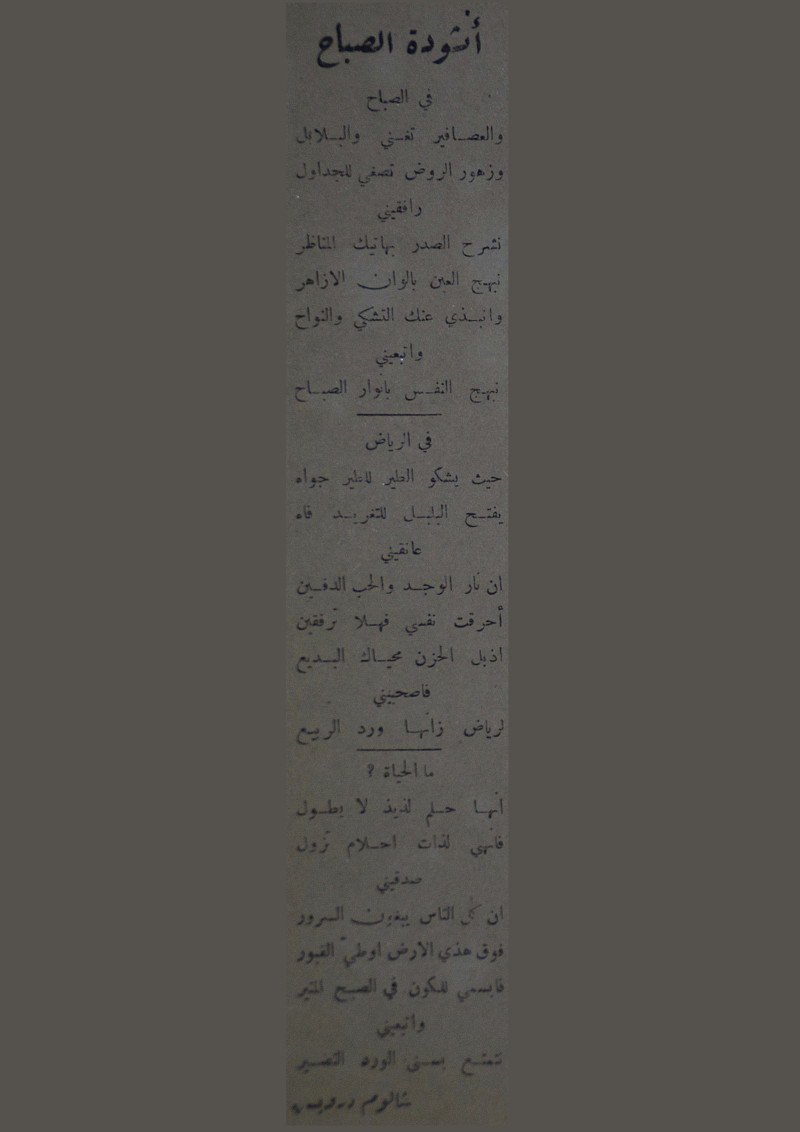 أنشودة الصباح
في الصباح
والعصافير تغني والبلابل
وزهور الروض تصغي للجداول
رافقيني
نشرح الصدر بهاتيك المناظر
نبهج العين بالوان الازاهر
وانبذي عنك التشكي والنواح
واتبعيني
نبهج النفس بانوار الصباح
في الرياض
حيث يشكو الطير للطير جواه
يفتح البلبل للتغريد فاه
عانقيني
ان نار الوجد والحب الدفين
أحرقت نفسي فهلا ترفقين
اذبل الحزن محياك البديع
فاصحبيني
لرياض زانها ورد الربيع
ما الحياة ؟
انها حلم لذيذ لا يطول
فانهي لذات احلام تزول
صدقيني
ان كل الناس يبغون السرور
فوق هذي الارض اوطيّ القبور
فابسمي للكون في الصبح المنير
واتبعيني
نتمتع بسنى الورد النضير
شالوم درويش